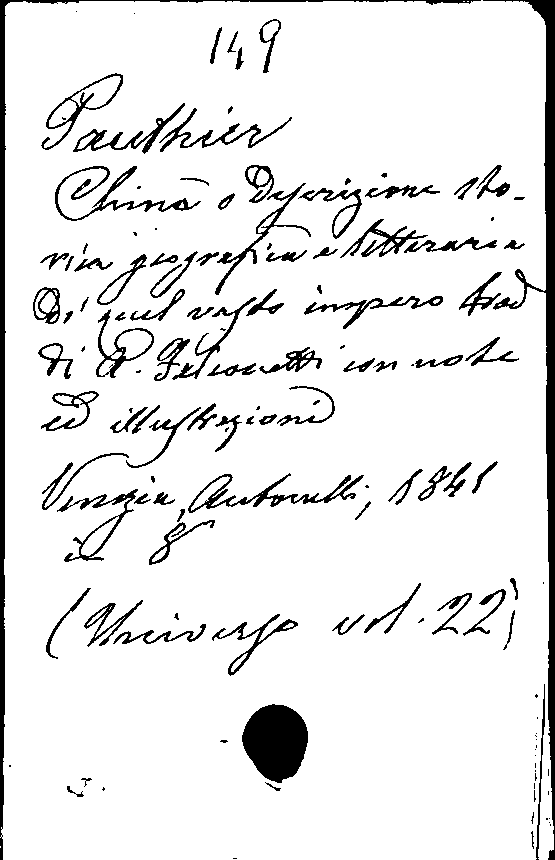 149
Pauthier
China o Descrizione sto-
rica geografica e letteraria
di quel vasto impero trad
di A. Falconetti con note
ed illustrazioni
Venezia, Antonelli, 1841
in 8°
(Universo vol. 22)